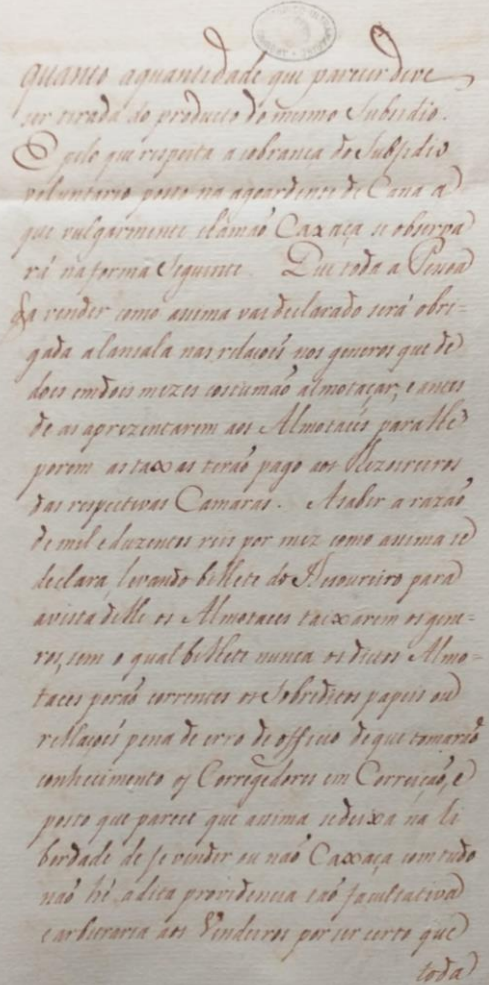 quanto aquantidade que parecer deve
ser tirada do producto do mesmo Subsidio.
E pelo que respeita a cobrança do Subsidio
voluntario posto na agoardente de Cana a
que vulgarmente chamaõ Caxaça se observa
rá na forma seguinte. Que toda a Pesoa
q̃ a vender como asima vai declarado será obri-
gada a lansala nas relaçoẽs nos generos que de
dois em dois mezes costumaõ almotaçar, e antes
de as aprezentarem aos Almotacés para lhe
porem as taxas teraõ pago aos Thezoureiros
das respectivas Camaras. Asaber a razaõ
de mil e duzentos reis por mez como asima se
declara, levando bilhete do Thesoureiro para
avista delle os Almotaces taixarem os gene-
ros, sem o qual bilhete nunca os dictos Almo-
taces poraõ correntes os sobreditos papeis ou
rellaçoẽs pena de erro de officio de que tomaraõ
conhecimento os Corregedores em Correiçaõ, e
posto que parece que asima se deixa na li
berdade de se vender ou naõ Caxaça com tudo
naõ hé a dita providencia taõ facultativa
e arbitraria aos Vendeiros por ser certo que
toda